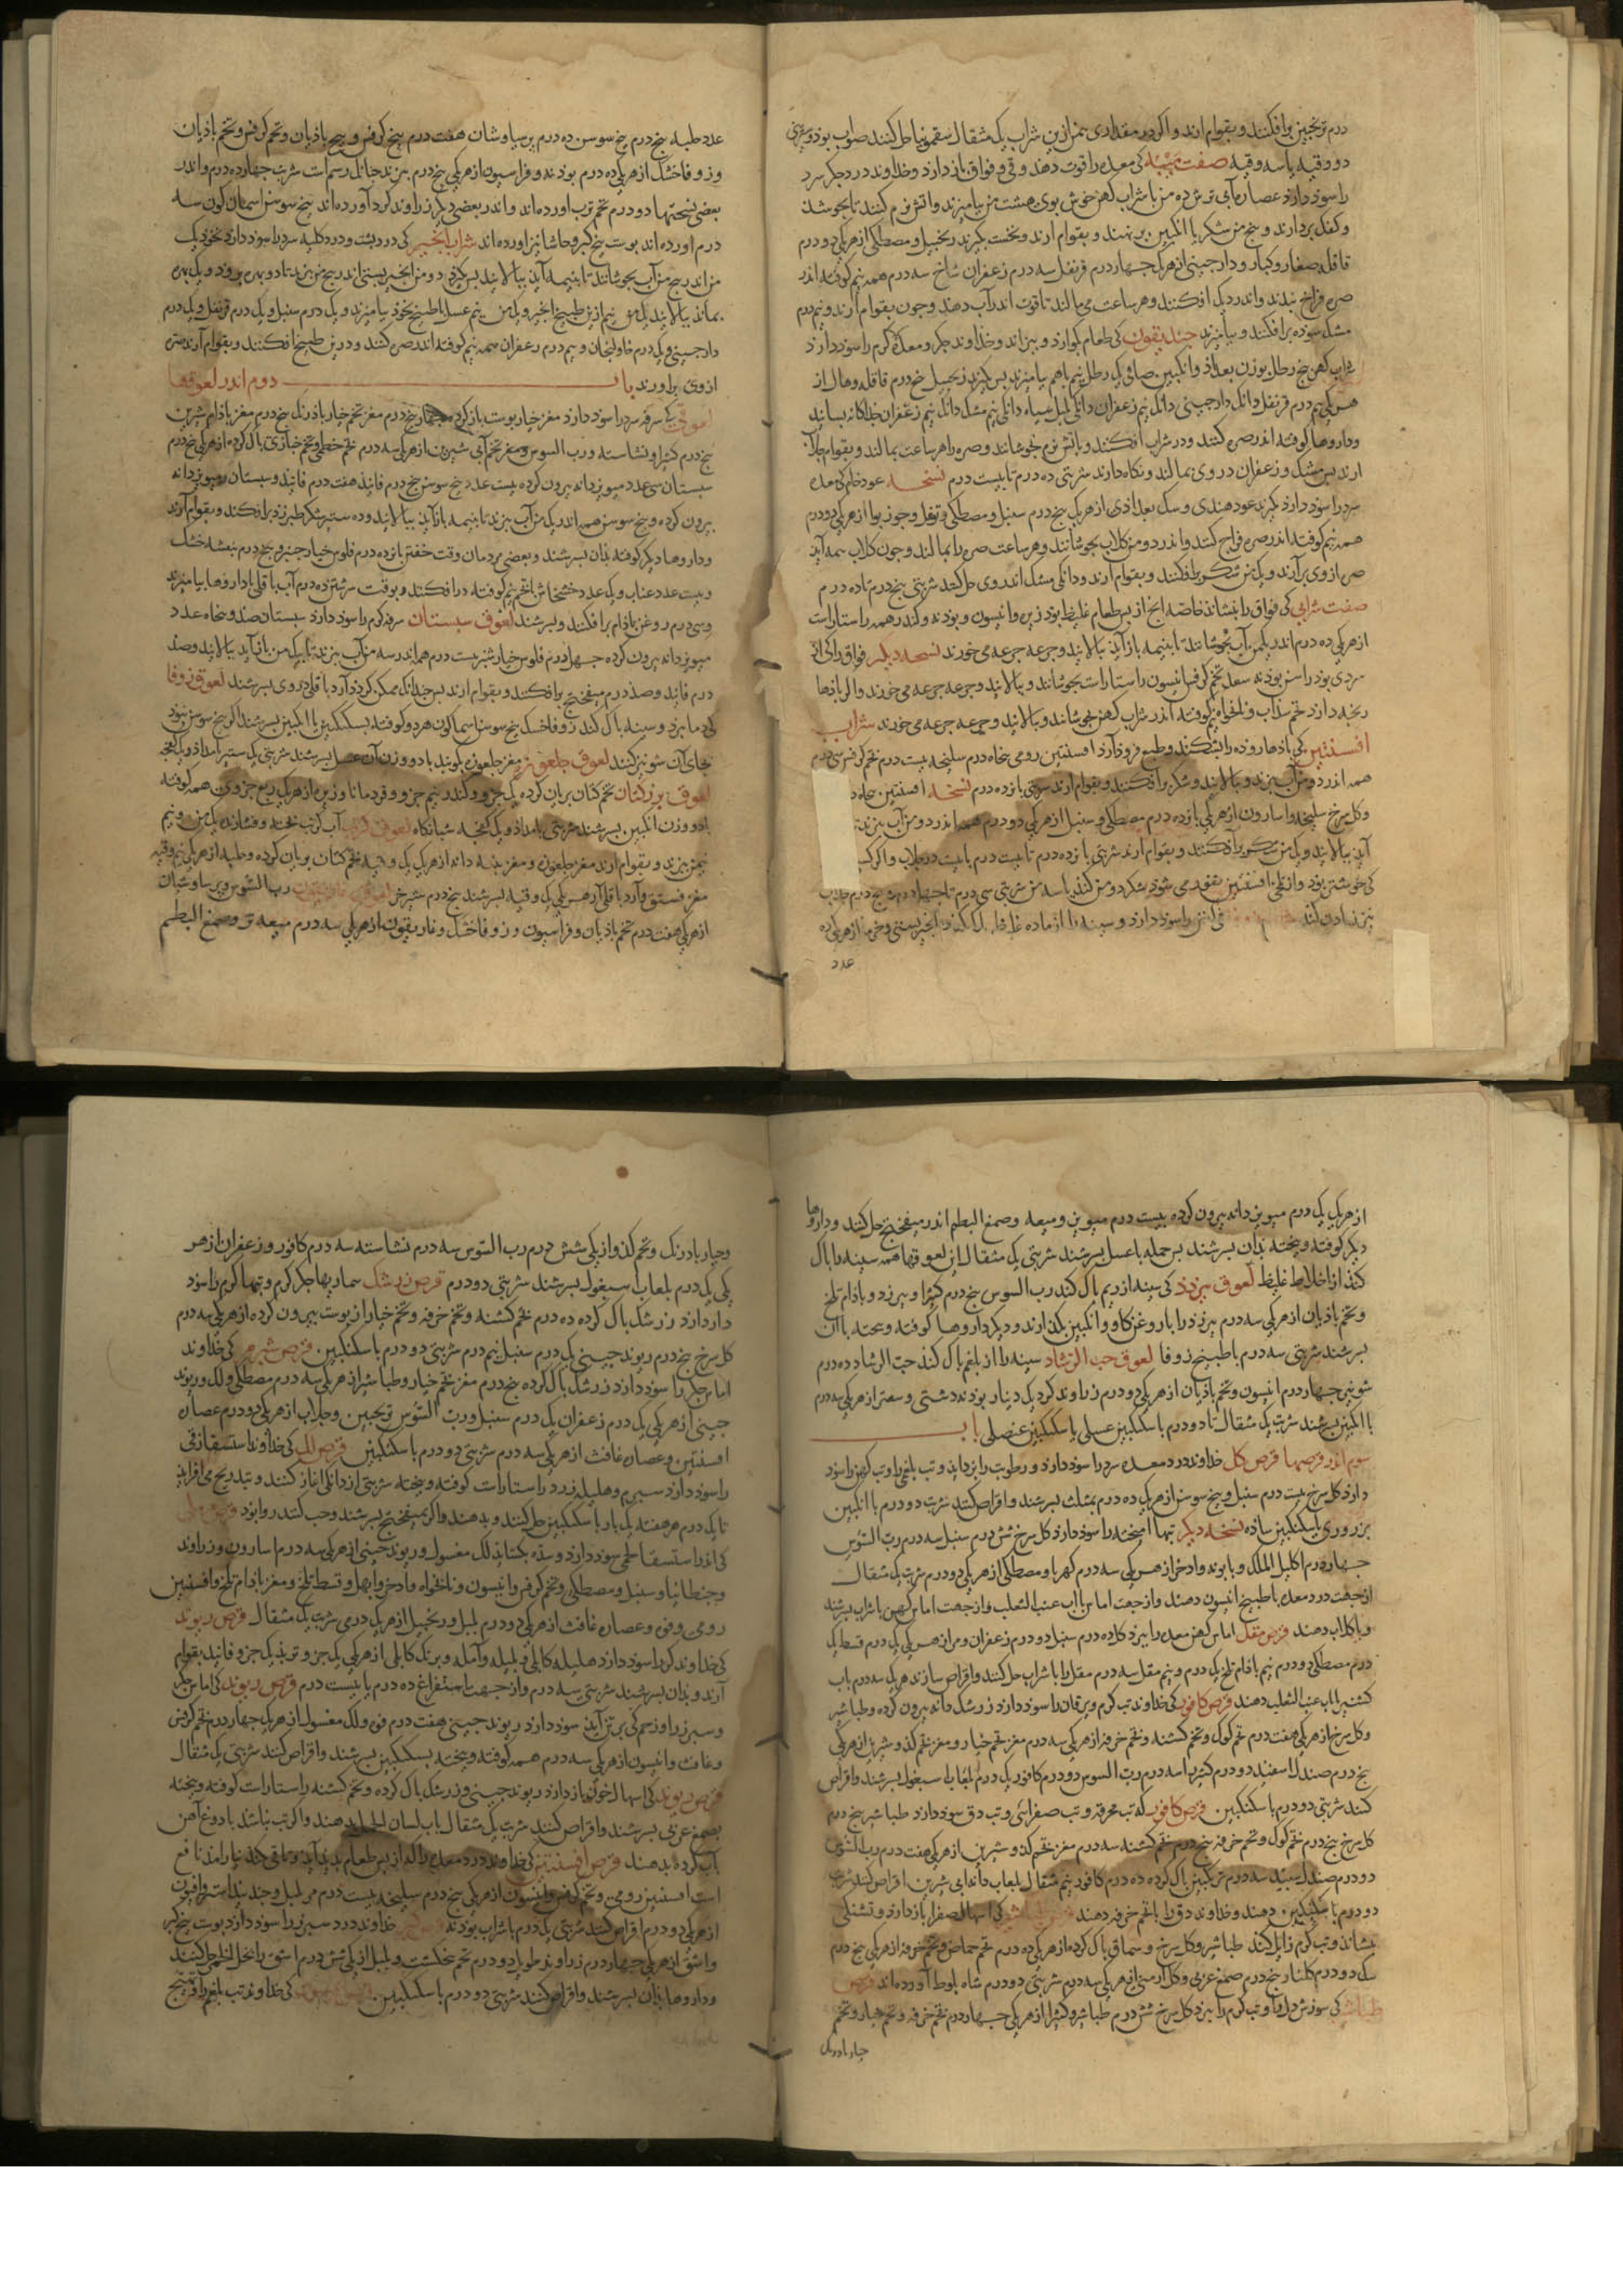 درم ترنجبین برافکنند و بقوام ارند و اکر در مقداری من ازین شراب یک مثقال سقمونیا حل کنند صواب بود
دو وقیه یا سه وقیه صفت میبه کی معده را قوت دهد و قی و فواق باز دارد و خداوند درد جکر سرد
را سوذ دارد عصاره آبی ترش ده من با شراب کهن خوش بوی هشت من بیامیزند و اتش نرم کنند تا بجوشد
و کفک بردارند و پنج من شکر یا انکبین برنهند و بقوام ارند و نخست بکیرند زنجبیل و مصطکی از هر یکی دو درم
قاقله صغار و کبار و دارجینی از هر یک جهار درم قرنفل سه درم زعفران شاخ سه درم همه نیم کوفته اندر
صره فراخ بندند و اندر دیک افکنند و هر ساعت می مالند تا قوت اندر آب دهد و جون بقوام آرند و نیم درم
مشک سوده برافکنند و بیامیزند جندیقون کی طعام بکوارد و ببزاند و خداوند جکر و معده کرم را سود دارد
کهن پنج رطل بوزن بغداد و انکبین صافی یک رطل و نیم باهم بیامیزند بس بکیرند زنجبیل پنج درم قاقله و هال از
هر یکی نیم درم قرنفل دانک دارجینی دانک نیم زعفران دانکی بلبل سیاه دانکی نیم مشک دانک نیم زعفران جداکانه بسایند
و داروها کوفته اندر صره کنند و در شراب افکنند و باتش نرم بجوشانند و صره را هر ساعت بمالند و بقوام جلاب
ارند بس مشک و زعفران در وی بمالند و نکاه دارند شربتی ده درم تا بیست درم نسخه عود خام کی معده
سرد را سوذ دارد بکیرند عود هندی و سک بغدادی از هر یک پنج درم سنبل و مصطکی و قرنفل و جوز بوا از هر یکی دو درم
همه نیم کوفته اندر صره فراخ کنند و اندر دو من کلاب بجوشانند و هر ساعت صره را بمالند و جون کلاب بنیمه آید
صره ازوی برآرند و یک من شکر برافکنند و بقوام ارند و دانکی مشک اندروی حل کنند شربتی پنج درم تا ده درم
صفت شرابی کی فواق را بنشاند خاصه انج از بس طعام غلیظ بود زیره و انیسون و بودنه و کندر همه راستاراست
از هر یکی ده درم اندر یک من آب بجوشانند تا بنیمه باز آید بیالایند و جرعه جرعه می خورند نسخه دیکر فواق را کی از
سردی بود راسن بودنه سعد تخم کرفس انیسون راستاراست بجوشانند و بیالایند و جرعه جرعه می خورند و اکر باذها
رنجه دارد تخم سداب و نانخواه نیم کوفته اندر شراب کهن بجوشانند و بیالایند و جرعه جرعه می خورند شراب
افسنتین کی باذها روده را بشکند و طبع فروذ آرد افسنتین رومی پنجاه درم سلیخه بیست درم تخم کرفس سی درم
همه اندر دو من آب بپزند و بیالایند و شکر برافکنند و بقوام ارند شربتی بانزده درم نسخه افسنتین پنجاه
و کل سرخ سلیخه و اسارون از هر یکی بانزده درم مصطکی و سنبل از هر یکی دو درم همه اندر دو من آب بپزند
آید بیالایند و یک من شکر برافکنند و بقوام ارند شربتی بانزده درم تا بیست درم با بیست درم جلاب و اکر
کی خوشتر بود
عدد
عدد حلبه پنج درم بیخ سوسن ده درم پرسیاوشان هفت درم بیخ کرفس و بیخ باذیان و تخم کرفس و تخم باذیان
و زوفا خشک از هر یکی ده درم بودنه و فراسیون از هر یکی پنج درم ببزند جنانک رسم است شربت جهارده درم و اندر
بعضی نسختها دو درم تخم ترب اورده اند و اندر بعضی دیکر زراوند کرد آورده اند بیخ سوسن اسمان کون سه
درم اورده اند بوست بیخ کبر و حاشا نیز اورده اند شراب انجیر کی درد بشت و درد کلیه سرد را سوذ دارد نخود یک
من اندر پنج من آب بجوشانند تا بنیمه آید بیالایند بس بکیرند دو من انجیر بستی اندر پنج من ببزند تا دو بهر برود و یک بهر
بماند بیالایند یک من و نیم ازین طبیخ انجیر و یک من و نیم عسل با طبیخ نخود بیامیزند و یک درم سنبل و یک درم قرنفل و یک درم
دارجینی و یک درم خاولنجان و نیم درم زعفران همه نیم کوفته اندر صره کنند و درین طبیخ افکنند و بقوام آرند صره
ازوی برآورند باب دوم اندر لعوقها
لعوقی کی سرفه سرد را سوذ دارد مغز خیار بوست باز کرده پنج درم مغز تخم خیار باذرنک پنج درم مغز باذام شیرین
پنج درم کتیرا و نشاسته و رب السوس و مغز تخم آبی شیرین از هر یکی سه درم تخم خطمی و تخم خبازی باک کرده از هر یکی پنج درم
سبستان سی عدد میویز دانه بیرون کرده بیست عدد بیخ سوسن پنج درم فانیذ هفت درم فانیذ و سبستان و میویز دانه
بیرون کرده و بیخ سوسن همه اندر یک من آب ببزند تا بنیمه باز آید بیالایند و ده ستیر شکر طبرزد برافکنند و بقوام آرند
و داروها دیکر کوفته بذان بسرشند و بعضی مردمان وقت خفتن بانزده درم فلوس خیارجنبر و پنج درم بنفشه خشک
و بیست عدد عناب و یک عدد خشخاش با تخم نیم کوفته درافکنند و بوقت سرشتن ده درم آب باقلی با داروها بیامیزند
و سی درم روغن باذام برافکنند و بسرشند لعوق سبستان سرفه کرم را سوذ دارد سبستان صد و پنجاه عدد
میویز دانه بیرون کرده جهل درم فلوس خیارشنبر بیست درم همه اندر سه من آب ببزند تا بیک من باز آید بیالایند و صد
درم فانیذ و صد درم میفختج برافکنند و بقوام ارند بس جندانک ممکن کردد آرد باقلی در وی بسرشند لعوق زوفا
کی دما ببرد و سینه باک کند زوفا خشک بیخ سوسن اسمانکون هر دو کوفته بسکنکبین یا انکبین بسرشند اکر بیخ سوسن نبود
بجای آن شونیز کنند لعوق جلغوزه مغز جلغوزه بکوبند با دو وزن آن عسل بسرشند شربتی یک ستیر بامداد و یک کفجه
لعوق بزر کتان تخم کتان بریان کرده یک جزو و کندر نیم جزو و قردمانا و زیره از هر یکی ربع جزوی همه کوفته
با دو وزن انکبین بسرشند شربتی بامداذ و یک کفجه شبانکاه لعوق کرنب آب کرنب بخته و فشارده یک من و نیم
نیم من ببزند و بقوام ارند مغز جلغوزه و مغز بنبه دانه از هر یک یک وقیه تخم کتان بریان کرده و حلبه از هر یکی نیم وقیه
مغز فستق و آرد باقلی از هر یکی یک وقیه بسرشند پنج درم شربتی لعوق غاریقون رب السوس و برسیاوشان
از هر یکی هفت درم تخم باذیان و فراسیون و زوفا خشک و غاریقون از هر یکی سه درم میعه تر و صمغ البطم
از هر یک یک درم میویز دانه بیرون کرده بیست درم میویز و میعه و صمغ البطم اندر میفختج حل کنند و داروها
دیکر کوفته و بیخته بذان بسرشند بس جمله با عسل بسرشند شربتی یک مثقال این لعوقها همه سینه را باک
کند از اخلاط غلیظ لعوق بیرزد کی سینه از ریم باک کند رب السوس پنج درم کتیرا و بیرزد و باذام تلخ
و تخم باذیان از هر یکی سه درم بیرزد را با روغن کاو و انکبین بکذارند و دیکر داروها کوفته و بیخته با ان
بسرشند شربتی سه درم با طبیخ زوفا لعوق حب الرشاد سینه را از بلغم باک کند حب الرشاد ده درم
شونیز جهار درم انیسون و تخم باذیان از هر یکی دو درم زراوند کرد یک دینار بودنه دشتی و سعتر از هر یکی سه درم
با انکبین بسرشند شربت یک مثقال تا دو درم با سکنکبین عسلی یا سکنکبین عنصلی باب
سوم اندر قرصها قرص کل خداوند درد معده سرد را سوذ دارد و رطوبت را بزداید و تب بلغمی را و تب کهن را سوذ
دارذ کل سرخ بیست درم سنبل و بیخ سوسن از هر یک ده درم بمثلث بسرشند و اقراص کنند شربت دو درم با انکبین
بزوری یا سکنکبین ساده نسخه دیکر تبها امیخته را سوذ دارد کل سرخ شش درم سنبل سه درم رب السوس
جهار درم اکلیل الملک و بابونه و اذخر از هر یکی سه درم کهربا و مصطکی از هر یکی دو درم شربت یک مثقال
از جهت درد معده با طبیخ انیسون دهند و از جهت اماس با آب عنب الثعلب و از جهت اماس کهن با شراب بسرشند
و با کلاب دهند قرص مقل اماس کهن معده را ببرد کل ده درم سنبل دو درم زعفران و مر از هر یکی یک درم قسط یک
درم مصطکی دو درم نیم باذام تلخ یک درم و نیم مقل سه درم مقل را با شراب حل کنند و اقراص سازند هر یک سه درم باب
کشنیز یا آب عنب الثعلب دهند قرص کافور کی خداوند تب کرم و یرقان را سوذ دارد زرشک دانه بیرون کرده و طباشیر
و کل سرخ از هر یکی هفت درم تخم کوک و تخم کشنه و تخم خرفه از هر یکی سه درم مغز تخم خیار و مغز تخم کذو شیرین از هر یکی
پنج درم صندل اسفید دو درم کتیرا سه درم رب السوس دو درم کافور یک درم بلعاب اسبغول بسرشند و اقراص
کنند شربتی دو درم با سکنکبین قرص کافور کی تب محرقه و تب صفرائی و تب دق سوذ دارد طباشیر پنج درم
کل سرخ پنج درم تخم کوک و تخم خرفه پنج درم تخم کشنه سه درم مغز تخم کذو شیرین از هر یکی هفت درم رب السوس
دو درم صندل سبید سه درم ترنکبین باک کرده ده درم کافور نیم مثقال بلعاب دانه آبی شیرین اقراص کنند شربت
دو درم با سکنکبین دهند و خداوند دق را با تخم خرفه دهند کی اسهال صفرا را باز دارد و تشنکی
بنشاند و تب کرم زایل کند طباشیر و کل سرخ و سماق باک کرده از هر یکی ده درم تخم حماض و تخم خرفه از هر یکی پنج درم
سک دو درم کلنار پنج درم صمغ عربی و کل ارمنی از هر یکی سه درم شربتی دو درم شاه بلوط آورده اند قرص
طباشیر کی سوزش دل و تب کرم را ببرد کل سرخ شش درم طباشیر و کتیرا از هر یکی جهار درم تخم خرفه و تخم خیار و تخم
خیار بادرنک
وخیار بادرنک و تخم کذو از یکی شش درم رب السوس سه درم نشاسته سه درم کافور و زعفران از هر
یکی یک درم بلعاب سبغول بسرشند شربتی دو درم قرص زرشک بیماریها جکر کرم و تبها کرم را سوذ
دارد زرشک باک کرده ده درم تخم کشنه و تخم خرفه و تخم خیار از بوست بیرون کرده از هر یکی سه درم
کل سرخ پنج درم ریوند جینی یک درم سنبل نیم درم شربتی دو درم با سکنکبین قرص شبرم کی خداوند
اماس جکر را سوذ دارد زرشک باک کرده پنج درم مغز تخم خیار و طباشیر از هر یکی سه درم مصطکی و لک و ریوند
جینی از هر یکی یک درم زعفران یک درم سنبل و رب السوس ترنجبین و جلاب از هر یکی دو درم عصاره
افسنتین و عصاره غافث از هر یکی سه درم شربتی دو درم با سکنکبین قرص لک کی خداوند استسقا زقی
را سوذ دارد شبرم و هلیله زرد راستاراست کوفته و بیخته شربتی از دانکی اغاز کنند و بتدریج می افزایند
تا یک درم هر هفته یک بار با سکنکبین حل کنند و بدهند و اکر بمیفختج بسرشند و حب کنند روا بود
کی اندر استسقا لحمی سوذ دارد و سده بکشاید لک مغسول و ریوند جینی از هر یکی سه درم اسارون و زراوند
و جنطیانا و سنبل و مصطکی و تخم کرفس و انیسون و نانخواه و اذخر و ابهل و قسط تلخ و مغز باذام تلخ و افسنتین
رومی و فوه و عصاره غافث از هر یکی دو درم بلبل و زنجبیل از هر یک درمی شربت یک مثقال قرص ریوند
کی خداوند کرد را سوذ دارد هلیله کابلی و بلیله و آمله و برنک کابلی از هر یکی یک جزو و تربد یک جزو فانیذ بقوام
آرند و بذان بسرشند شربتی سه درم و از جهت استفراغ ده درم با بیست درم قرص ریوند کی اماس جکر
و سبرز را و زخم کی بر تن آید سوذ دارد ریوند جینی هفت درم فوه و لک مغسول از هر یک جهار درم تخم کرفس
و غافث و انیسون از هر یکی سه درم همه کوفته و بیخته بسکنکبین بسرشند و اقراص کنند شربتی یک مثقال
قرص ریوند کی اسهال خون باز دارد ریوند جینی و زرشک باک کرده و تخم کشنه راستاراست کوفته و بیخته
بصمغ عربی بسرشند و اقراص کنند شربت یک مثقال باب لسان الحمل بدهند و اکر تب نباشد با دوغ آهن
تاب کرده بدهند قرص افسنتین کی خداوند درد معده را کی از بس طعام بدید آید و تا قی نکند نیارامد نافع
است افسنتین رومی و تخم کرفس و انیسون از هر یکی پنج درم سلیخه بیست درم مر بلبل و جندبیدستر و افیون
از هر یکی دو درم اقراص کنند شربتی یک درم با شراب بودنه خداوند درد سبرز را سوذ دارد بوست بیخ کبر
و اشق از هر یکی جهار درم زراوند طویل دو درم تخم بنجنکشت و بلبل از یکی شش درم اشق را بخل خمر حل کنند
و داروها بذان بسرشند و اقراص کنند شربتی دو درم با سکنکبین کی خداوند تب بلغم را